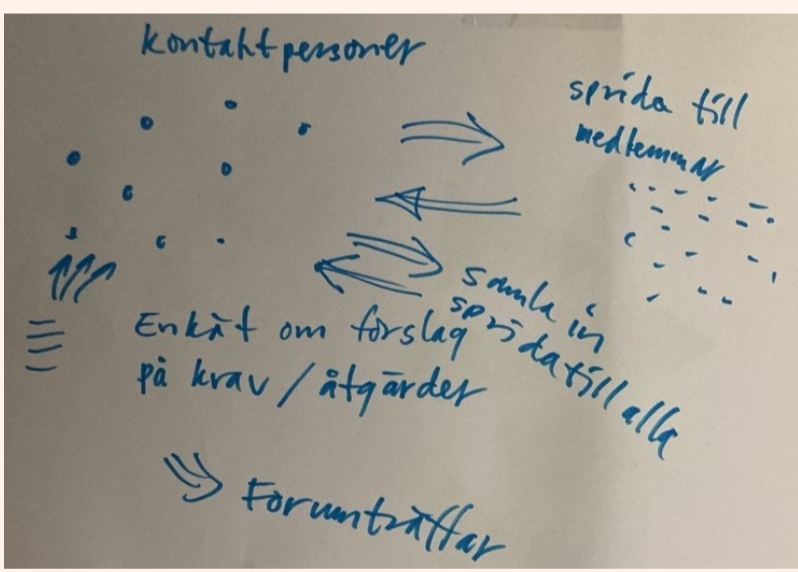 kontaktpersoner
sprida till
medlemmar
samla in
sprida till alla
Enkät om förslag
på krav / åtgärder
Forumträffar